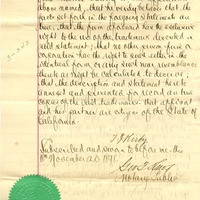 above named, that he verily believes that the
facts set forth in the foregoing statement are
true; that the firm aforesaid has the exclusive
right to the use of the trademark described in
said statement; that no other person firm or
corporation has the right to such use either in the
identical form or any such near resemblance
thereto as might be calculated to deceive;
that the description and statement hereto
annexed and presented for record are true
copies of the said trademark that applicant
and her partner are citizens of the State of
California.
Subscribed and sworn to before me the
November A.D. 1878
Notary Public